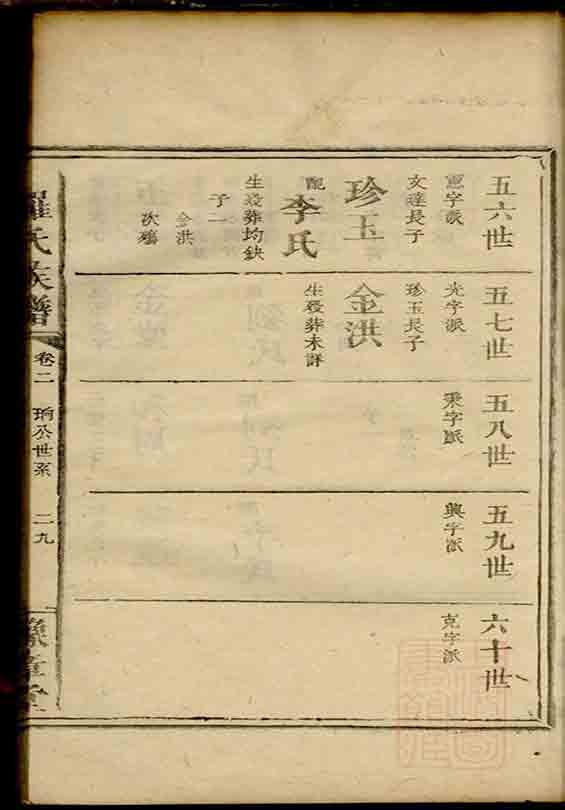 五六世
憲字派
文達長子
珍玉
配
李氏
生歿葬均缺
子二
金洪
次殤
五七世
光字派
珍玉長子
金洪
生歿葬未詳
五八世
秉字派
五九世
興字派
六十世
克字派
羅氏族譜
卷二
珦公世系
二九
豫章堂